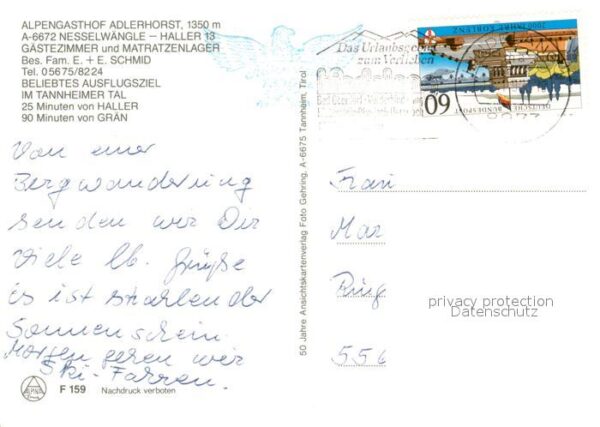 ALPENGASTHOF ADLERHORST, 1350 m
A-6672 NESSELWÄNGLE – HALLER 13
GÄSTEZIMMER und MATRATZENLAGER
Bes. Fam. E. + E. SCHMID
Tel. 05675/8224
BELIEBTES AUSFLUGSZIEL
IM TANNHEIMER TAL
25 Minuten von HALLER
90 Minuten von GRÄN
Von einer
Bergwanderung
senden wir Dir
Viele lb. Grüße
Es ist strahlender
Sonnenschein.
Morgen gehen wir
Ski-Fahren.
F 159 Nachdruck verboten
50 Jahre Ansichtskartenverlag Foto Gehring, A-6675 Tannheim, Tirol
Das Urlaubsgebiet
zum Verlieben
2000 JAHRE KOBLENZ
60
DEUTSCHE
BUNDESPOST
Frau
Mar
Ring
556
privacy protection
Datenschutz